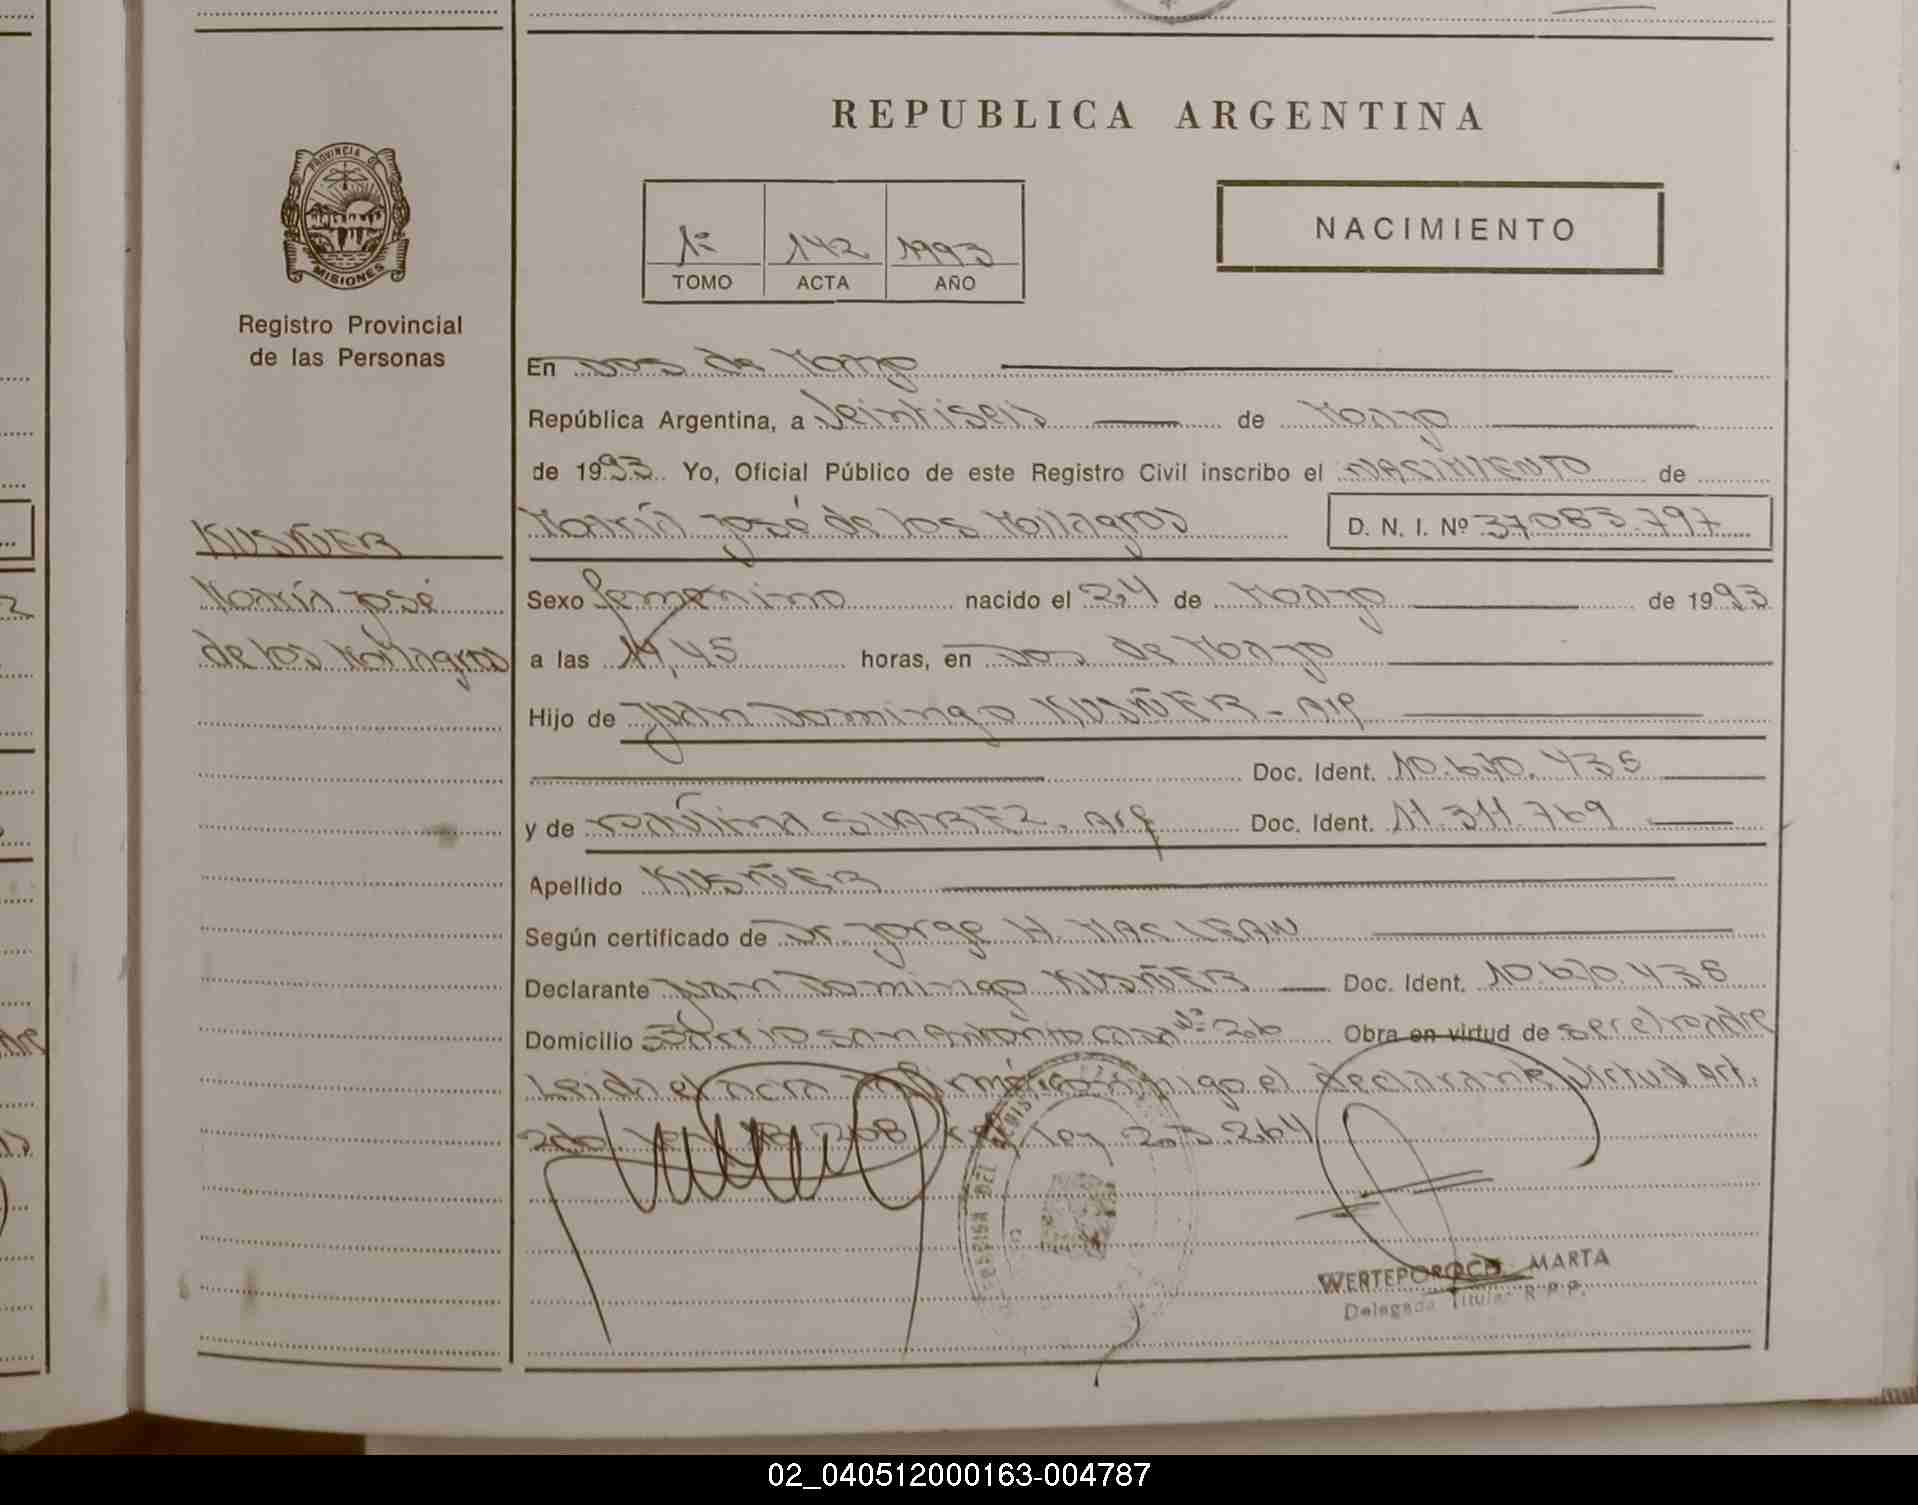 REPUBLICA ARGENTINA
PROVINCIA DE
MISIONES
Registro Provincial
de las Personas
1º 142 1993
TOMO ACTA AÑO
NACIMIENTO
En Dos de Mayo
República Argentina, a Veintiseis de Marzo
de 1993. Yo, Oficial Público de este Registro Civil inscribo el NACIMIENTO de
KUSÑER
María José de los Milagros D. N. I. Nº 37.083.797
María José
de los Milagros
Sexo femenino nacido el 24 de Marzo de 1993
a las 45 horas, en Dos de Mayo
Hijo de Juan Domingo KUSÑER - Arg
Doc. Ident. 10.670.435
y de SUAREZ. Arg Doc. Ident. 11.311.769
Apellido KUSÑER
Según certificado de Dr. Jorge H. MAC LEAN
Declarante Juan Domingo KUSÑER Doc. Ident. 10.670.435
Domicilio Barrio San Antonio casa Nº 26 Obra en virtud de ser el padre
Leida el acta la firmó conmigo el declarante Virtud Art.
2do Ley 18.248 Ley 23.264
WERTEPOROCH MARTA
Delegada Titular R.P.P.
02_040512000163-004787